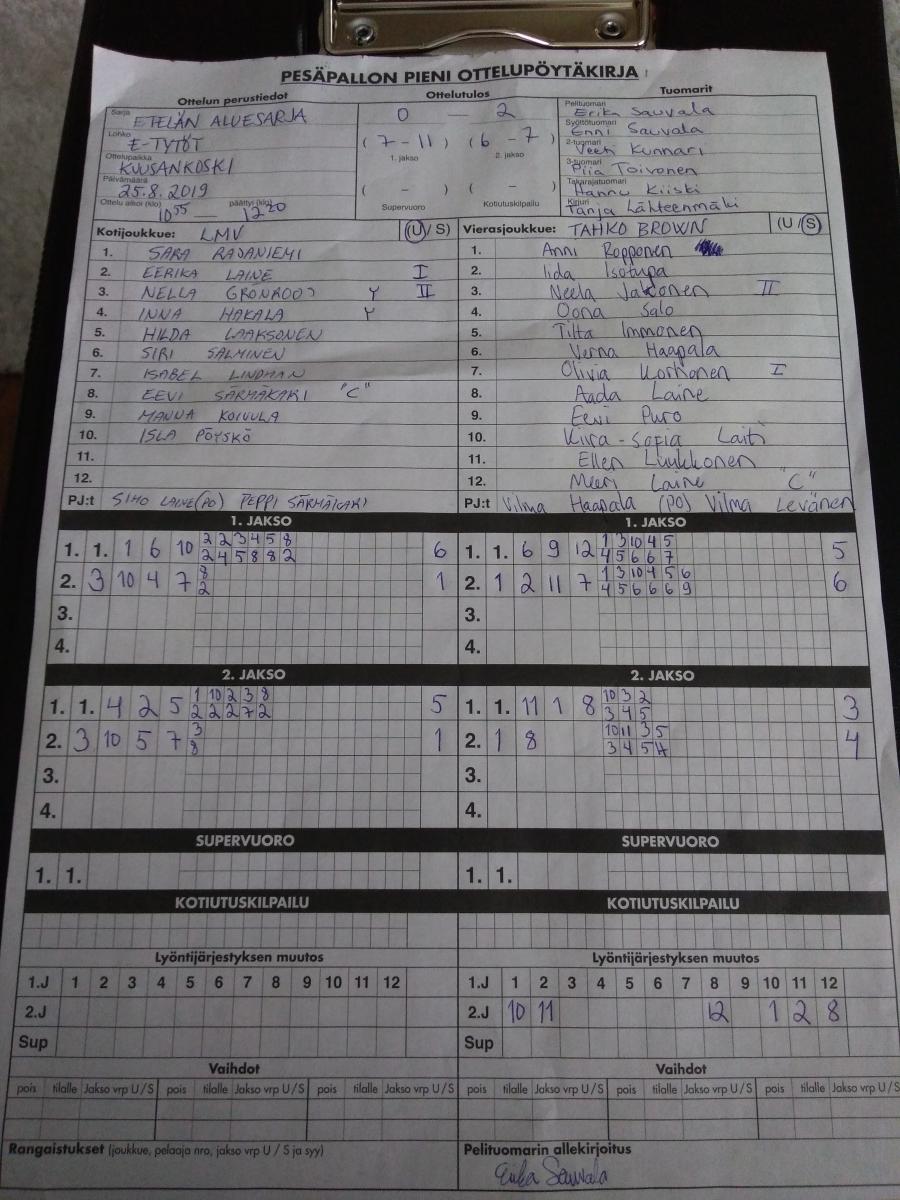 PESÄPALLON PIENI OTTELUPÖYTÄKIRJA
Ottelun perustiedot
Sarja ETELÄN ALUESARJA
Lohko E-TYTÖT
Ottelupaikka KUUSANKOSKI
Päivämäärä 25.8.2019
Ottelu alkoi (klo) 10 55 — päättyi (klo) 12 20
Ottelutulos
0 — 2
(7-11) (6-7)
1. jakso 2. jakso
( - ) ( - )
Supervuoro Kotiutuskilpailu
Tuomarit
Pelituomari Erika Sauvala
Syöttötuomari Enni Sauvala
2-tuomari Veeti Kunnari
3-tuomari Piia Toivonen
Takarajatuomari Hannu Kiiski
Kirjuri Tanja Lähteenmäki
Kotijoukkue: LMV (U/S)
1. SARA RAJANIEMI
2. EERIKA LAINE I
3. NELLA GRÖNROOS Y II
4. INNA HAKALA Y
5. HILDA LAAKSONEN
6. SIRI SALMINEN
7. ISABEL LINDMAN
8. EEVI SÄRMÄKARI "C"
9. MANUA KOIVULA
10. ISLA PÖYSKÖ
11.
12.
PJ:t SIMO LAINE (PO) PEPPI SÄRMÄKARI
Vierasjoukkue: TAHKO BROWN (U/S)
1. Anni Ropponen
2. Iida Isotupa
3. Neela Jakkonen II
4. Oona Salo
5. Tilta Immonen
6. Verna Haapala
7. Olivia Korhonen I
8. Aada Laine
9. Eevi Puro
10. Kiira-Sofia Laiti
11. Ellen Liukkonen
12. Meeri Laine "C"
PJ:t Vilma Haapala (PO) Vilma Levänen
1. JAKSO
1. 1. 1 6 10 2 2 3 4 5 8 6
2 4 5 8 8 2
2. 3 10 4 7 8 1
2
3.
4.
1. JAKSO
1. 1. 6 9 12 1 3 10 4 5 5
4 5 6 6 7
2. 1 2 11 7 1 3 10 4 5 6 6
4 5 6 6 6 9
3.
4.
2. JAKSO
1. 1. 4 2 5 1 10 2 3 8 5
2 2 2 7 2
2. 3 10 5 7 3 1
8
3.
4.
2. JAKSO
1. 1. 11 1 8 10 3 2 3
3 4 5
2. 1 8 10 11 3 5 4
3 4 5 4
3.
4.
SUPERVUORO
1. 1.
SUPERVUORO
1. 1.
KOTIUTUSKILPAILU
KOTIUTUSKILPAILU
Lyöntijärjestyksen muutos
1.J 1 2 3 4 5 6 7 8 9 10 11 12
2.J
Sup
Lyöntijärjestyksen muutos
1.J 1 2 3 4 5 6 7 8 9 10 11 12
2.J 10 11 12 1 2 8
Sup
Vaihdot
pois tilalle Jakso vrp U/S pois tilalle Jakso vrp U/S pois tilalle Jakso vrp U/S
Vaihdot
pois tilalle Jakso vrp U/S pois tilalle Jakso vrp U/S pois tilalle Jakso vrp U/S
Rangaistukset (joukkue, pelaaja nro, jakso vrp U / S ja syy)
Pelituomarin allekirjoitus
Erika Sauvala